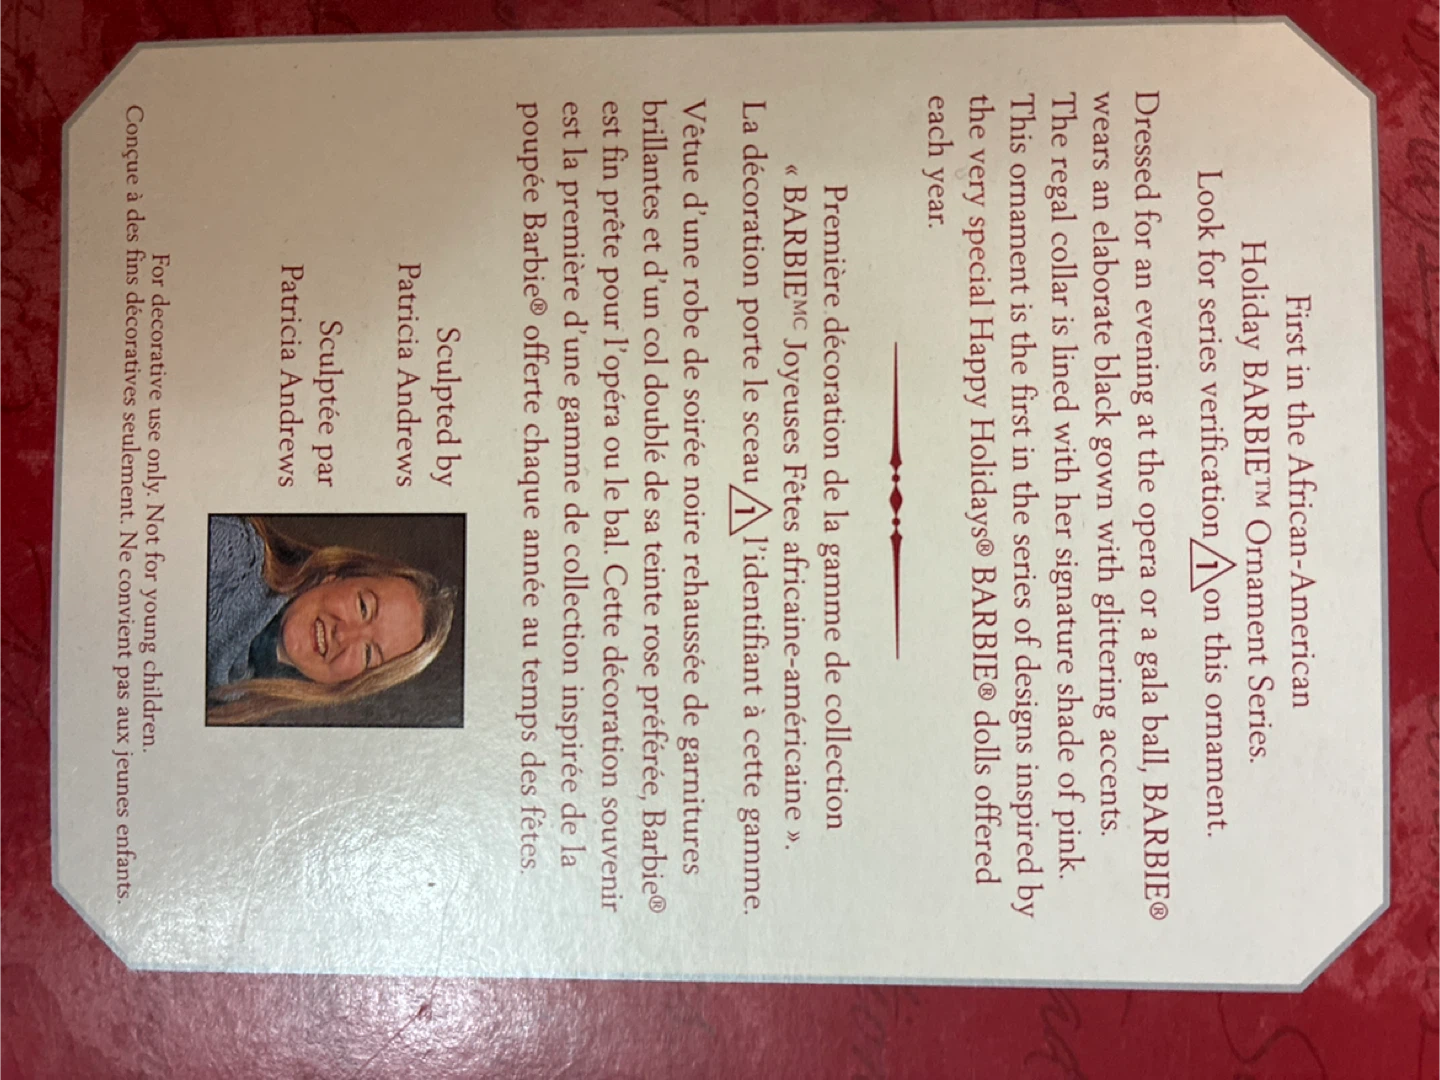 First in the African-American
Holiday BARBIE™ Ornament Series.
Look for series verification 1 on this ornament.
Dressed for an evening at the opera or a gala ball, BARBIE®
wears an elaborate black gown with glittering accents.
The regal collar is lined with her signature shade of pink.
This ornament is the first in the series of designs inspired by
the very special Happy Holidays® BARBIE® dolls offered
each year.
Première décoration de la gamme de collection
« BARBIEᴹᶜ Joyeuses Fêtes africaine-américaine ».
La décoration porte le sceau 1 l'identifiant à cette gamme.
Vêtue d'une robe de soirée noire rehaussée de garnitures
brillantes et d'un col doublé de sa teinte rose préférée, Barbie®
est fin prête pour l'opéra ou le bal. Cette décoration souvenir
est la première d'une gamme de collection inspirée de la
poupée Barbie® offerte chaque année au temps des fêtes.
Sculpted by
Patricia Andrews
Sculptée par
Patricia Andrews
For decorative use only. Not for young children.
Conçue à des fins décoratives seulement. Ne convient pas aux jeunes enfants.